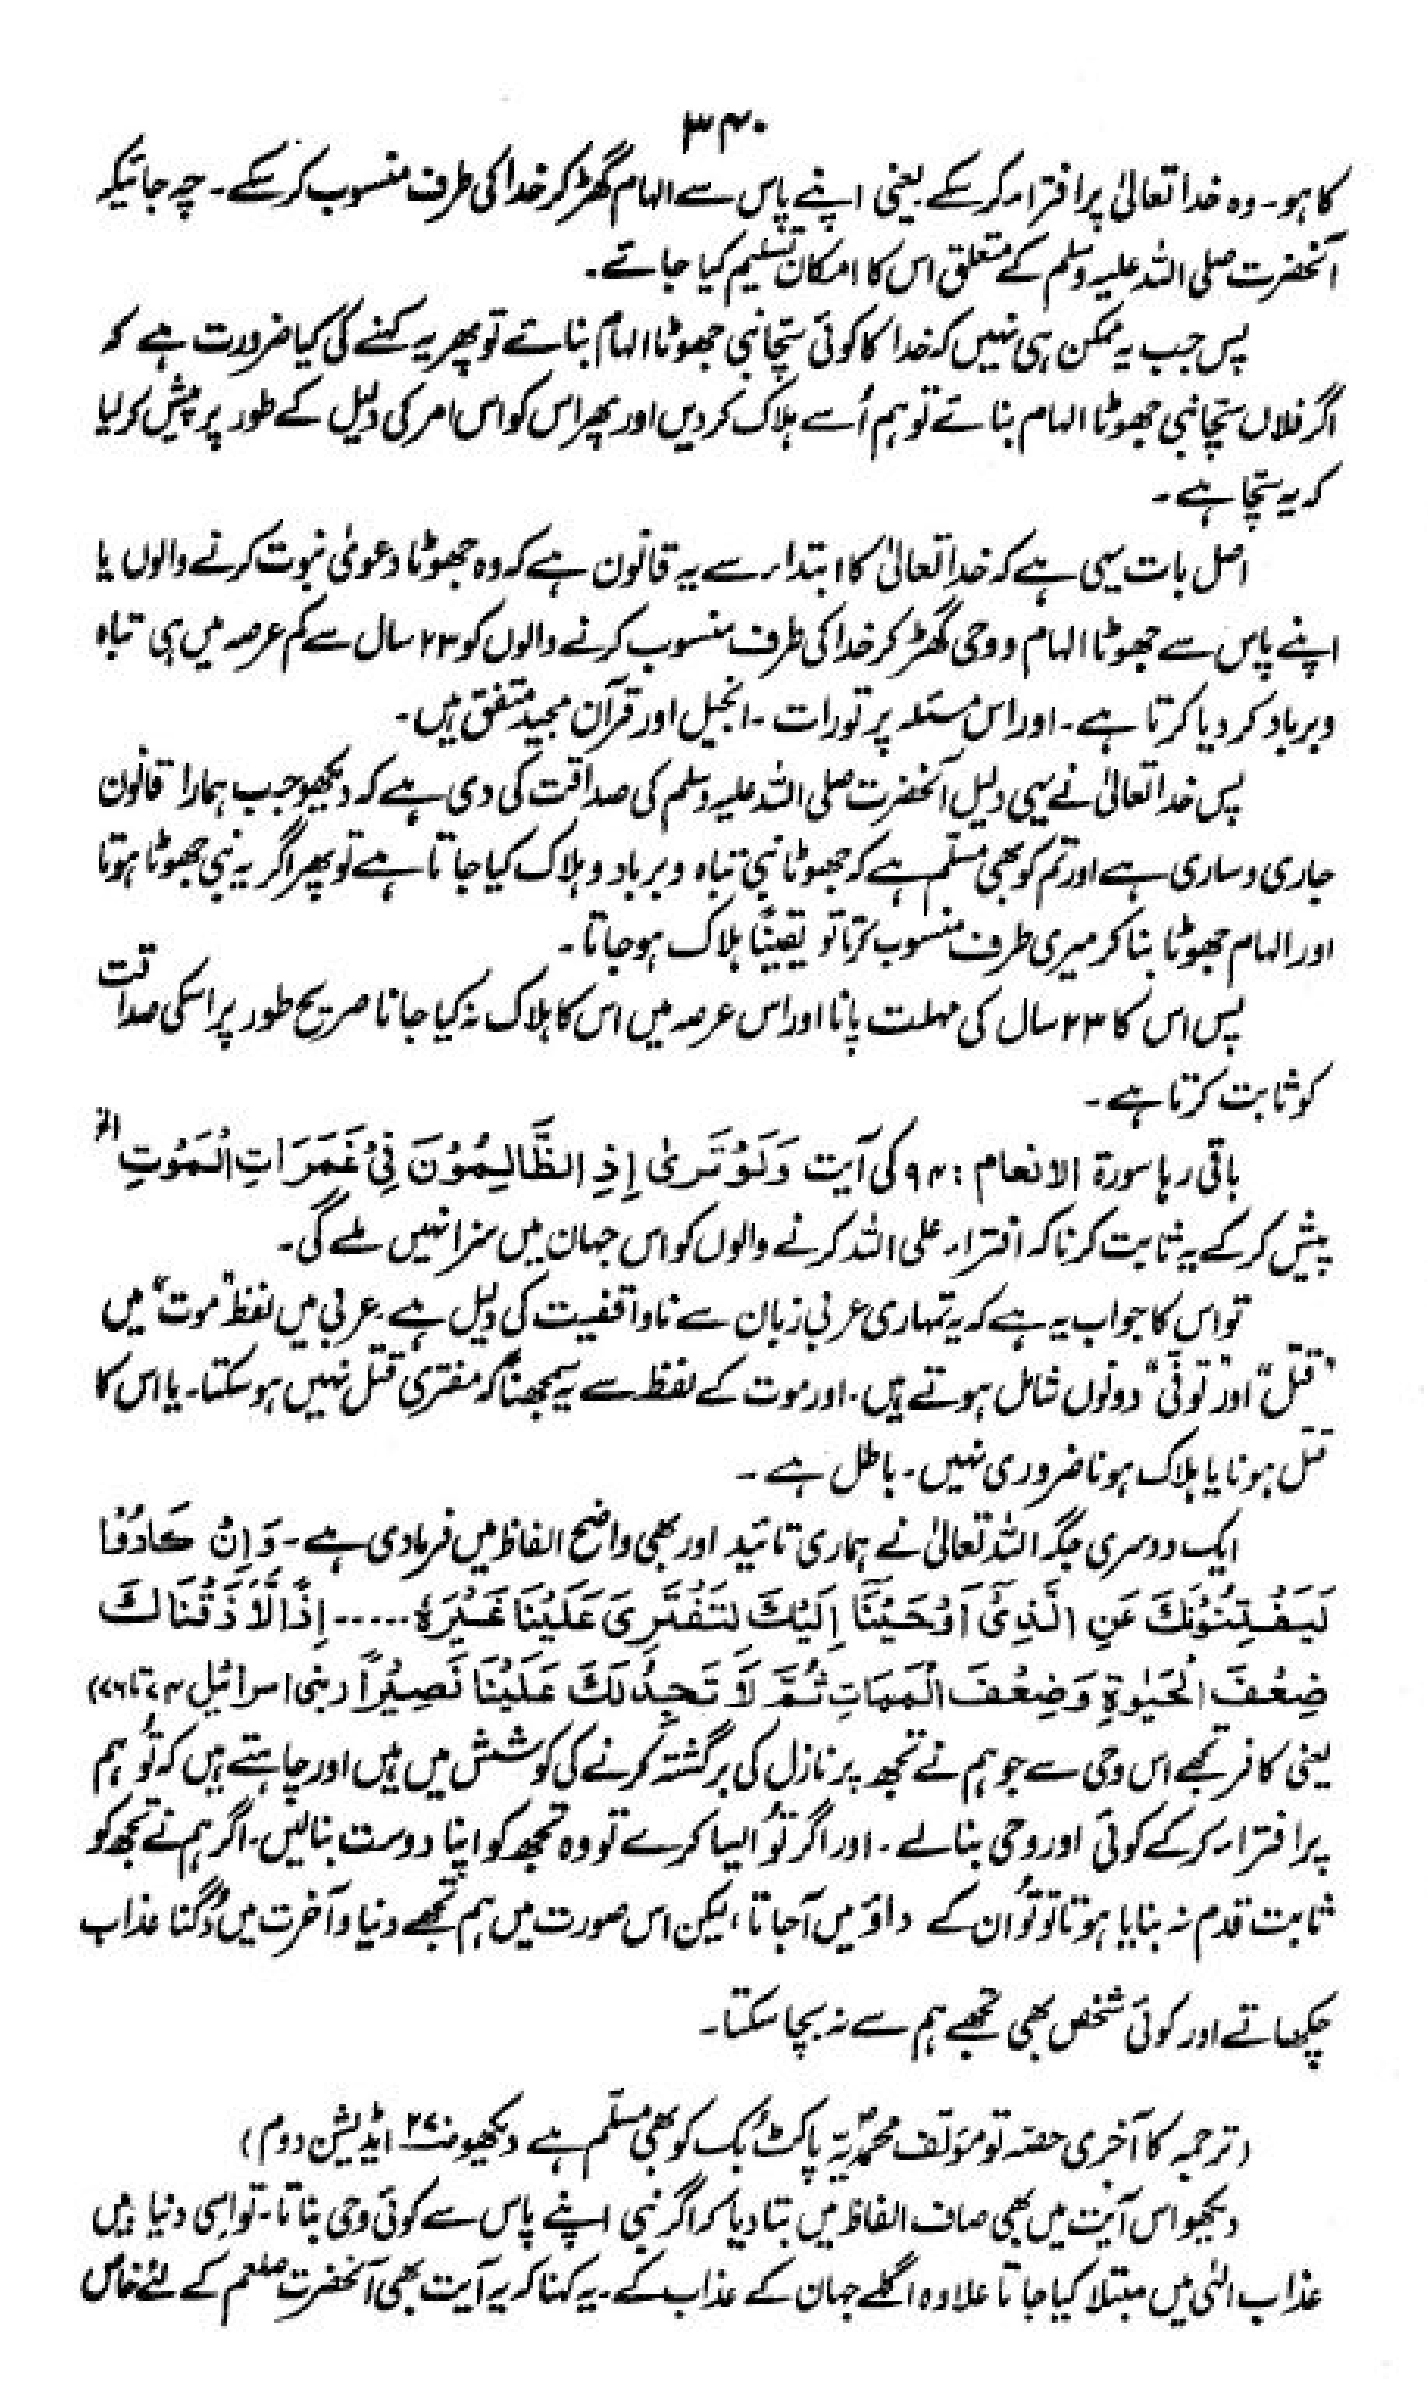 ۳۴۰
کا ہو۔ وہ خدا تعالیٰ پر افترار کر سکے۔ یعنی اپنے پاس سے الہام گھڑ کر خدا کی طرف منسوب کر سکے۔ چہ جائیکہ
آنحضرت صلی اللہ علیہ وسلم کے متعلق اس کا امکان تسلیم کیا جائے۔
پس جب یہ ممکن ہی نہیں کہ خدا کا کوئی سچا نبی جھوٹا الہام بنائے تو پھر یہ کہنے کی کیا ضرورت ہے کہ
اگر فلاں سچا نبی جھوٹا الہام بنائے تو ہم اُسے ہلاک کر دیں اور پھر اس کو اس امر کی دلیل کے طور پر پیش کر لیا
کہ یہ سچا ہے۔
اصل بات یہی ہے کہ خدا تعالیٰ کا ابتدار سے یہ قانون ہے کہ وہ جھوٹا دعویٰ نبوت کرنے والوں یا
اپنے پاس سے جھوٹا الہام و وحی گھڑ کر خدا کی طرف منسوب کرنے والوں کو ۲۳ سال سے کم عرصہ میں ہی تباہ
و برباد کر دیا کرتا ہے۔ اور اس مسئلہ پر تورات۔ انجیل اور قرآن مجید متفق ہیں۔
پس خدا تعالیٰ نے یہی دلیل آنحضرت صلی اللہ علیہ وسلم کی صداقت کی دی ہے کہ دیکھو جب ہمارا قانون
جاری و ساری ہے اور تم کو بھی مسلّم ہے کہ جھوٹا نبی تباہ و برباد و ہلاک کیا جاتا ہے تو پھر اگر یہ نبی جھوٹا ہوتا
اور الہام جھوٹا بنا کر میری طرف منسوب کرتا تو یقیناً ہلاک ہو جاتا۔
پس اس کا ۲۳ سال کی مہلت پانا اور اس عرصہ میں اس کا ہلاک نہ کیا جانا صریح طور پر اسکی صداقت
کو ثابت کرتا ہے۔
باقی رہا سورۃ الانعام : ۹۴ کی آیت وَلَوْ تَرٰی اِذِ الظَّالِمُوْنَ فِیْ غَمَرَاتِ الْمَوْتِ الخ
پیش کر کے یہ ثابت کرنا کہ افترار علی اللہ کرنے والوں کو اس جہان میں سزا نہیں ملے گی۔
تو اس کا جواب یہ ہے کہ یہ تمہاری عربی زبان سے ناواقفیت کی دلیل ہے۔ عربی میں لفظ "موت" میں
"قتل" اور "توفّی" دونوں شامل ہوتے ہیں۔ اور موت کے لفظ سے یہ سمجھنا کہ مفتری قتل نہیں ہو سکتا۔ یا اس کا
قتل ہونا یا ہلاک ہونا ضروری نہیں۔ باطل ہے۔
ایک دوسری جگہ اللہ تعالیٰ نے ہماری تائید اور بھی واضح الفاظ میں فرما دی ہے۔ وَاِنْ كَادُوْا
لَیَفْتِنُوْنَكَ عَنِ الَّذِیْ اَوْحَیْنَا اِلَیْكَ لِتَفْتَرِیَ عَلَیْنَا غَیْرَهٗ ..... اِذًا لَّاَذَقْنَاكَ
ضِعْفَ الْحَیٰوةِ وَضِعْفَ الْمَمَاتِ ثُمَّ لَا تَجِدُ لَكَ عَلَیْنَا نَصِیْرًا (بنی اسرائیل ۷۴ تا ۷۶)
یعنی کافر تجھے اس وحی سے جو ہم نے تجھ پر نازل کی برگشتہ کرنے کی کوشش میں ہیں اور چاہتے ہیں کہ تُو ہم
پر افترار کر کے کوئی اور وحی بنا لے۔ اور اگر تُو ایسا کرے تو وہ تجھ کو اپنا دوست بنا لیں۔ اگر ہم نے تجھ کو
ثابت قدم نہ بنایا ہوتا تو تُو ان کے داؤ میں آ جاتا، لیکن اس صورت میں ہم تجھے دنیا و آخرت میں دُگنا عذاب
چکھاتے اور کوئی شخص بھی تجھے ہم سے نہ بچا سکتا۔
(ترجمہ کا آخری حصہ تو مؤلف محمدیہ پاکٹ بک کو بھی مسلّم ہے دیکھو ایڈیشن دوم)
دیکھو اس آیت میں بھی صاف الفاظ میں بتا دیا کہ اگر نبی اپنے پاس سے کوئی وحی بناتا۔ تو اسی دنیا میں
عذاب الٰہی میں مبتلا کیا جاتا علاوہ اگلے جہان کے عذاب کے۔ یہ کہنا کہ یہ آیت بھی آنحضرت صلعم کے لئے خاص